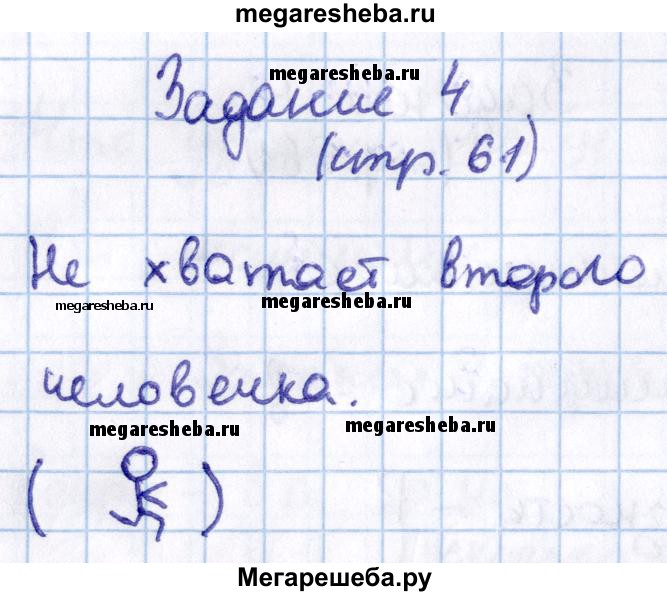 megaresheba.ru
megaresheba.ru
Задание 4
(стр. 61)
Не хватает второго
megaresheba.ru
megaresheba.ru
человечка.
megaresheba.ru
megaresheba.ru
( )
Мегарешеба.ру